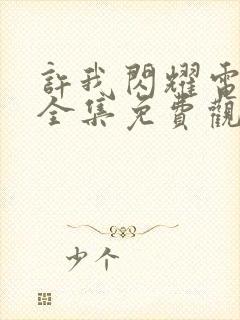 許我閃耀電
全集免費觀
少个